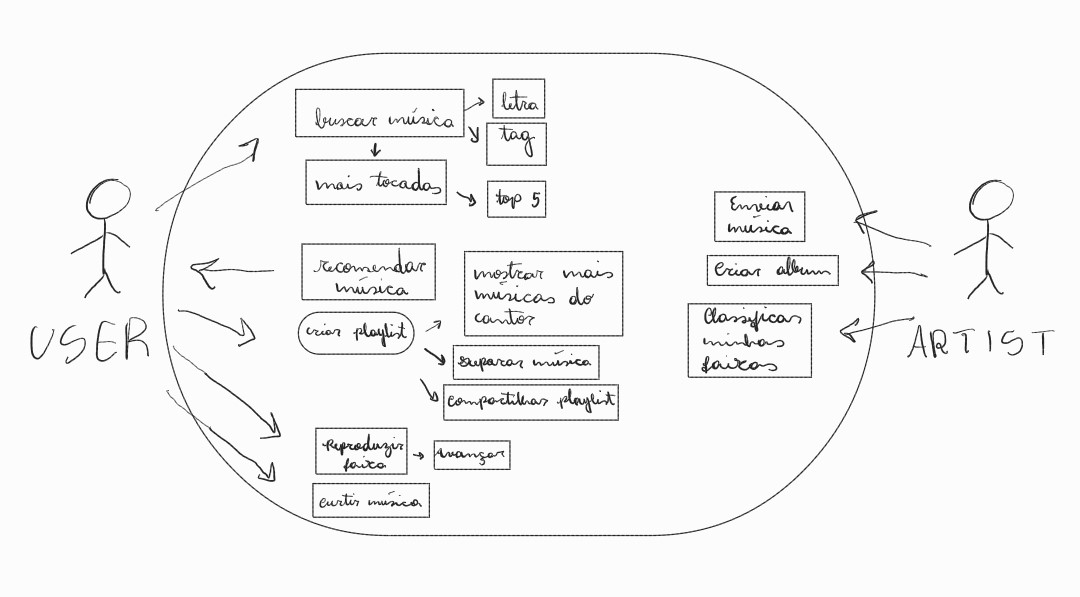 buscar música
letra
tag
mais tocadas
top 5
recomendar
música
mostrar mais
músicas do
cantor
criar playlist
separar música
compartilhar playlist
Reproduzir
faixa
Avançar
curtir música
USER
Enviar
música
Criar album
Classificar
minhas
faixas
ARTIST